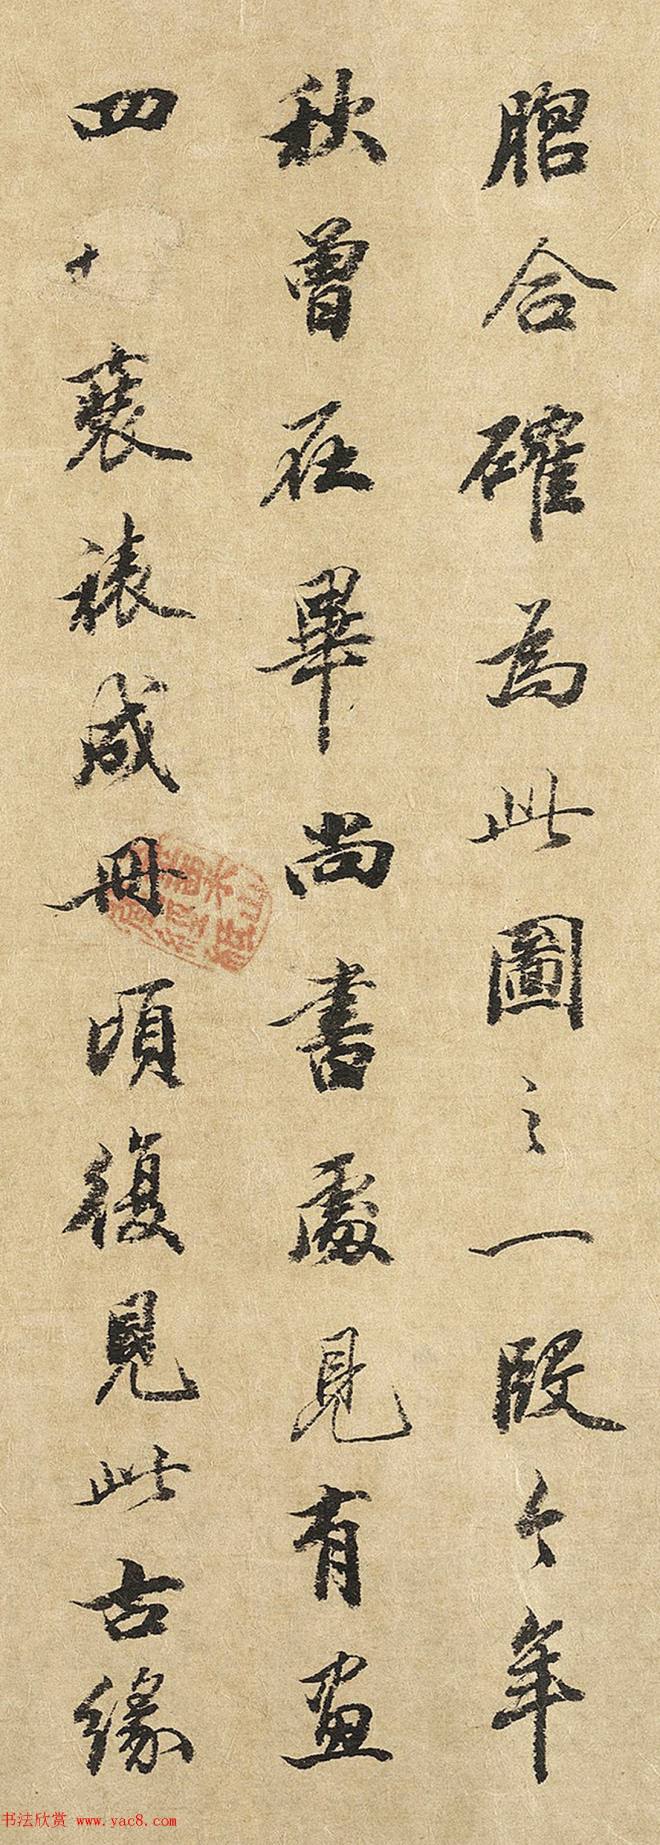 脗合確為此圖之一段今年
秋曾在畢尚書處見有畫
四十裝裱成冊頃復見此古緣
书法欣赏 www.yac8.com